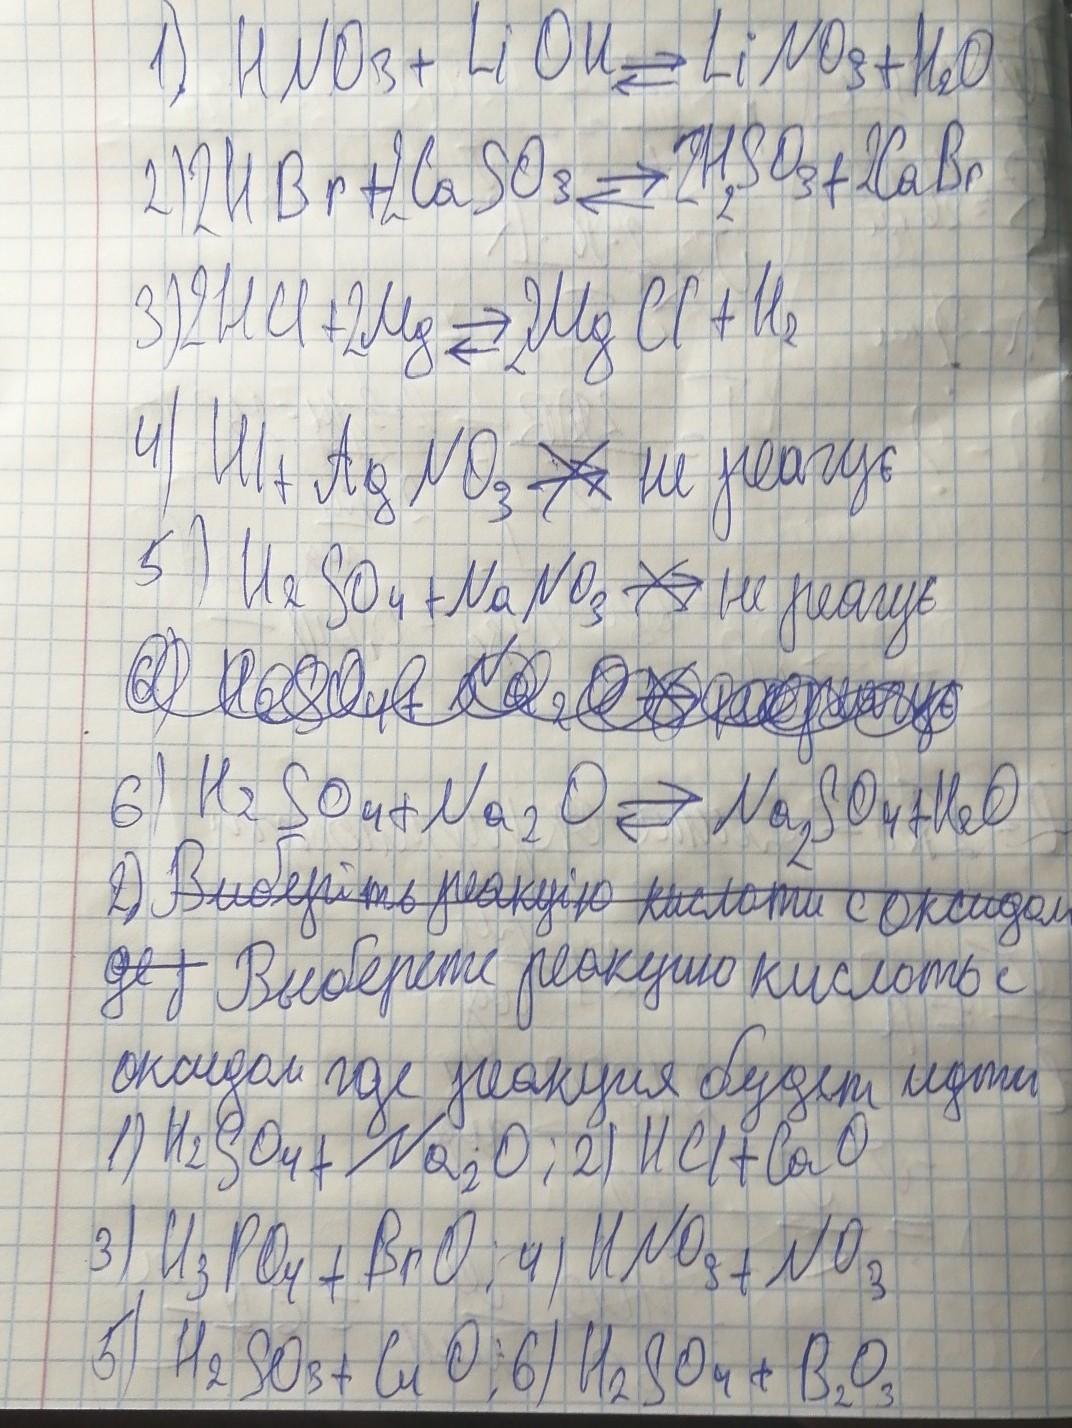 1) HNO₃ + LiOH ⇄ LiNO₃ + H₂O
2) 2HBr + 2CaSO₃ ⇄ 2H₂SO₃ + 2CaBr
3) 2HCl + 2Mg ⇄ 2MgCl + H₂
4) HI + AgNO₃ не реагує
5) H₂SO₄ + NaNO₃ не реагує
6) H₂SO₄ + Na₂O ⇄ Na₂SO₄ + H₂O
2) Виберіть реакцію кислоти с оксидом
де Выберете реакцию кислоты с
оксидом где реакция будет идти
1) H₂SO₄ + Na₂O; 2) HCl + CaO
3) H₃PO₄ + BrO; 4) HNO₃ + NO₃
5) H₂SO₃ + CuO; 6) H₂SO₄ + B₂O₃